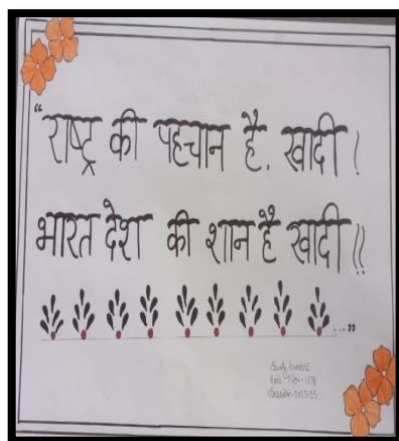 "राष्ट्र की पहचान है, खादी !
भारत देश की शान है खादी !!
...."